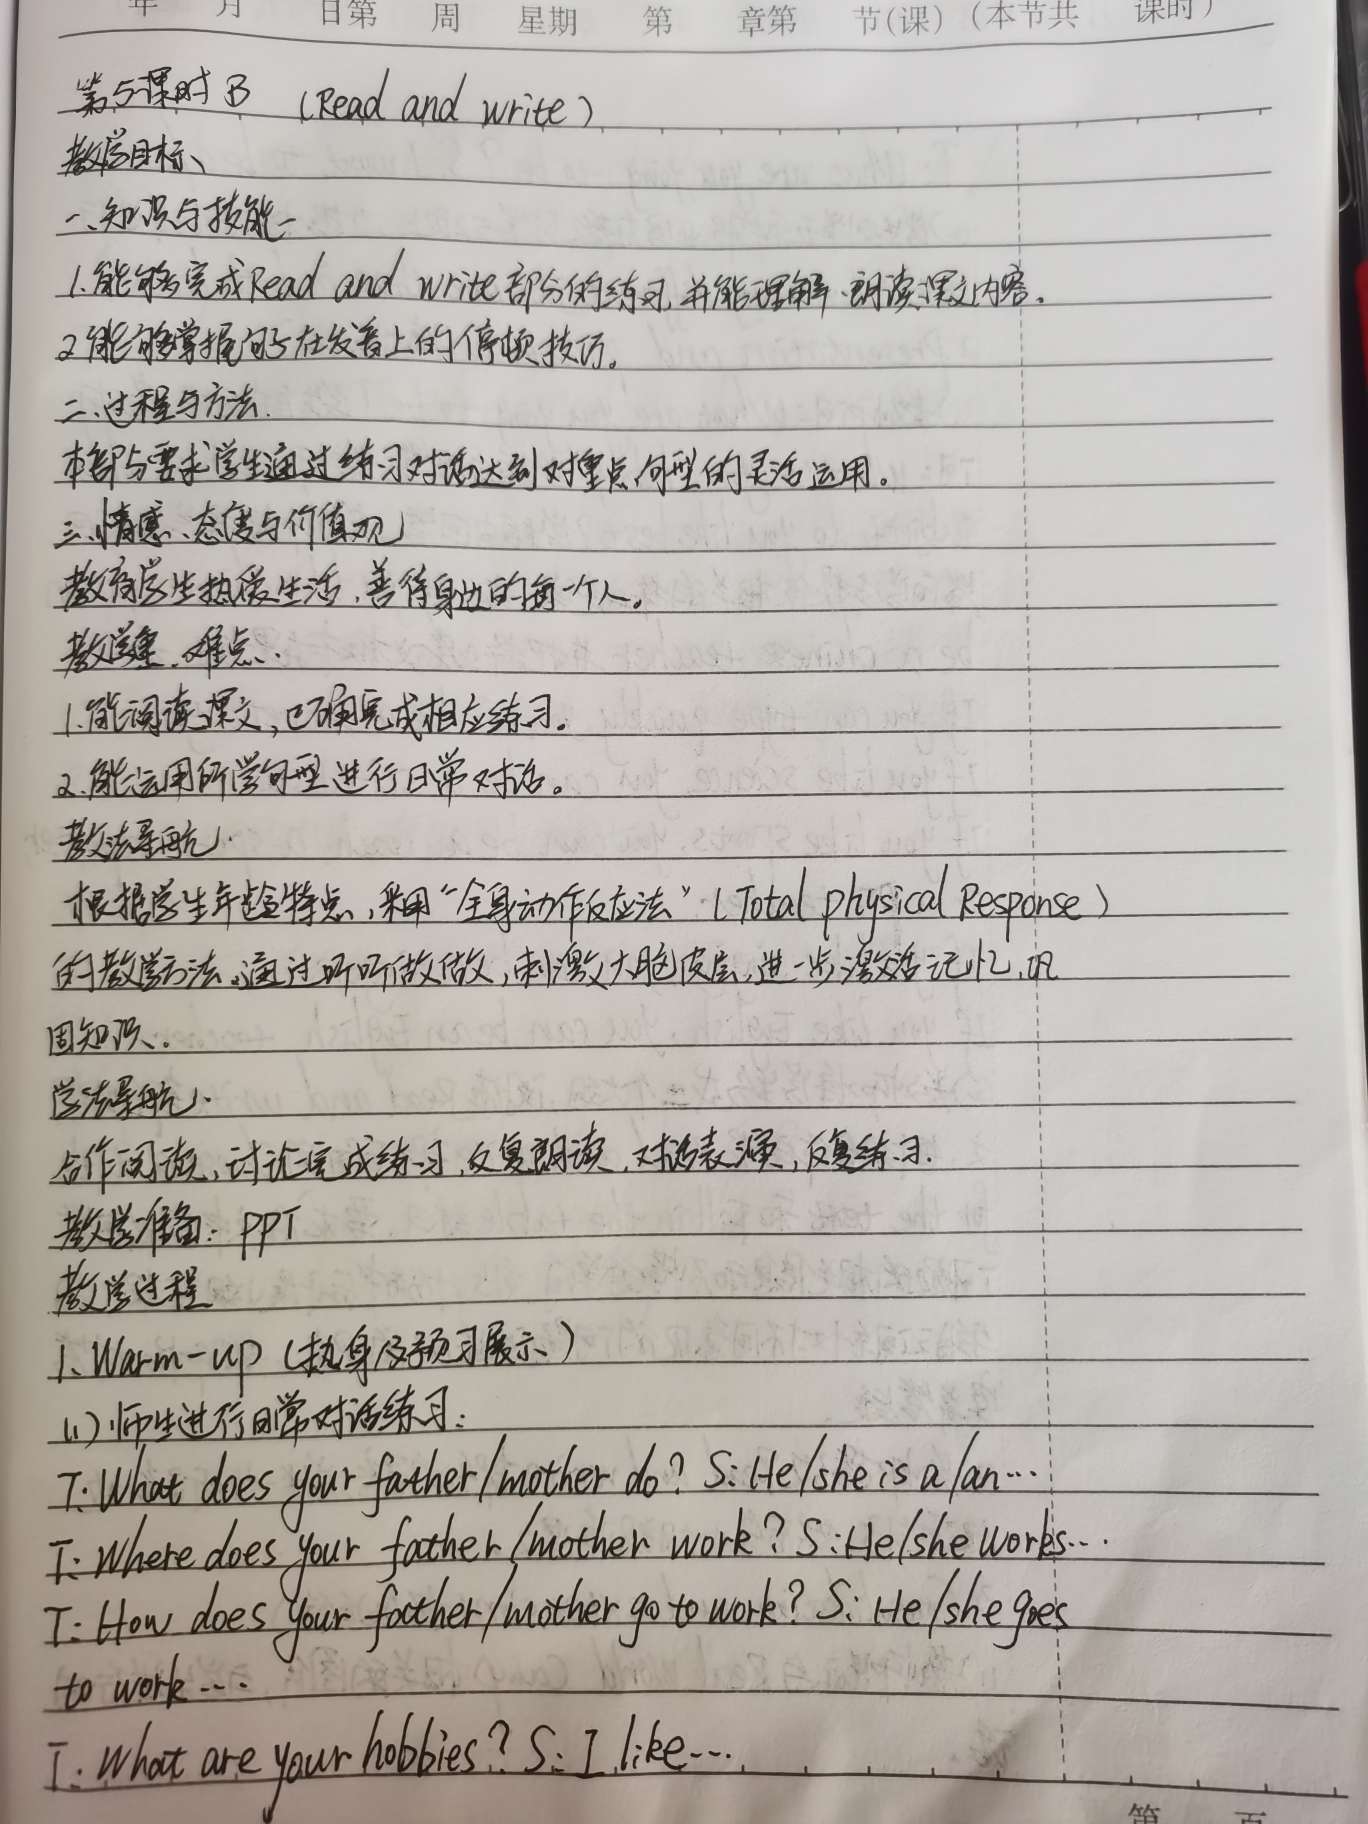 年 月 日第 周 星期 第 章第 节(课) (本节共 课时)
第5课时 B (Read and write)
教学目标、
一、知识与技能
1.能够完成Read and write部分的练习,并能理解、朗读课文内容。
2.能够掌握句子在发音上的停顿技巧。
二、过程与方法.
本部分要求学生通过练习对话达到对重点句型的灵活运用。
三、情感、态度与价值观
教育学生热爱生活,善待身边的每一个人。
教学重、难点.
1.能阅读课文,正确完成相应练习。
2.能运用所学句型进行日常对话。
教法导航.
根据学生年龄特点,采用“全身动作反应法”(Total physical Response)
的教学方法。通过听听做做,刺激大脑皮层,进一步激活记忆,巩
固知识。
学法导航.
合作阅读,讨论完成练习,反复朗读,对话表演,反复练习.
教学准备:PPT
教学过程
1、Warm-up (热身及预习展示)
(1)师生进行日常对话练习:
T: What does your father/mother do? S: He/she is a/an…
T: Where does your father/mother work? S: He/she works…
T: How does your father/mother go to work? S: He/she goes
to work…
T: What are your hobbies? S: I like…
第 页